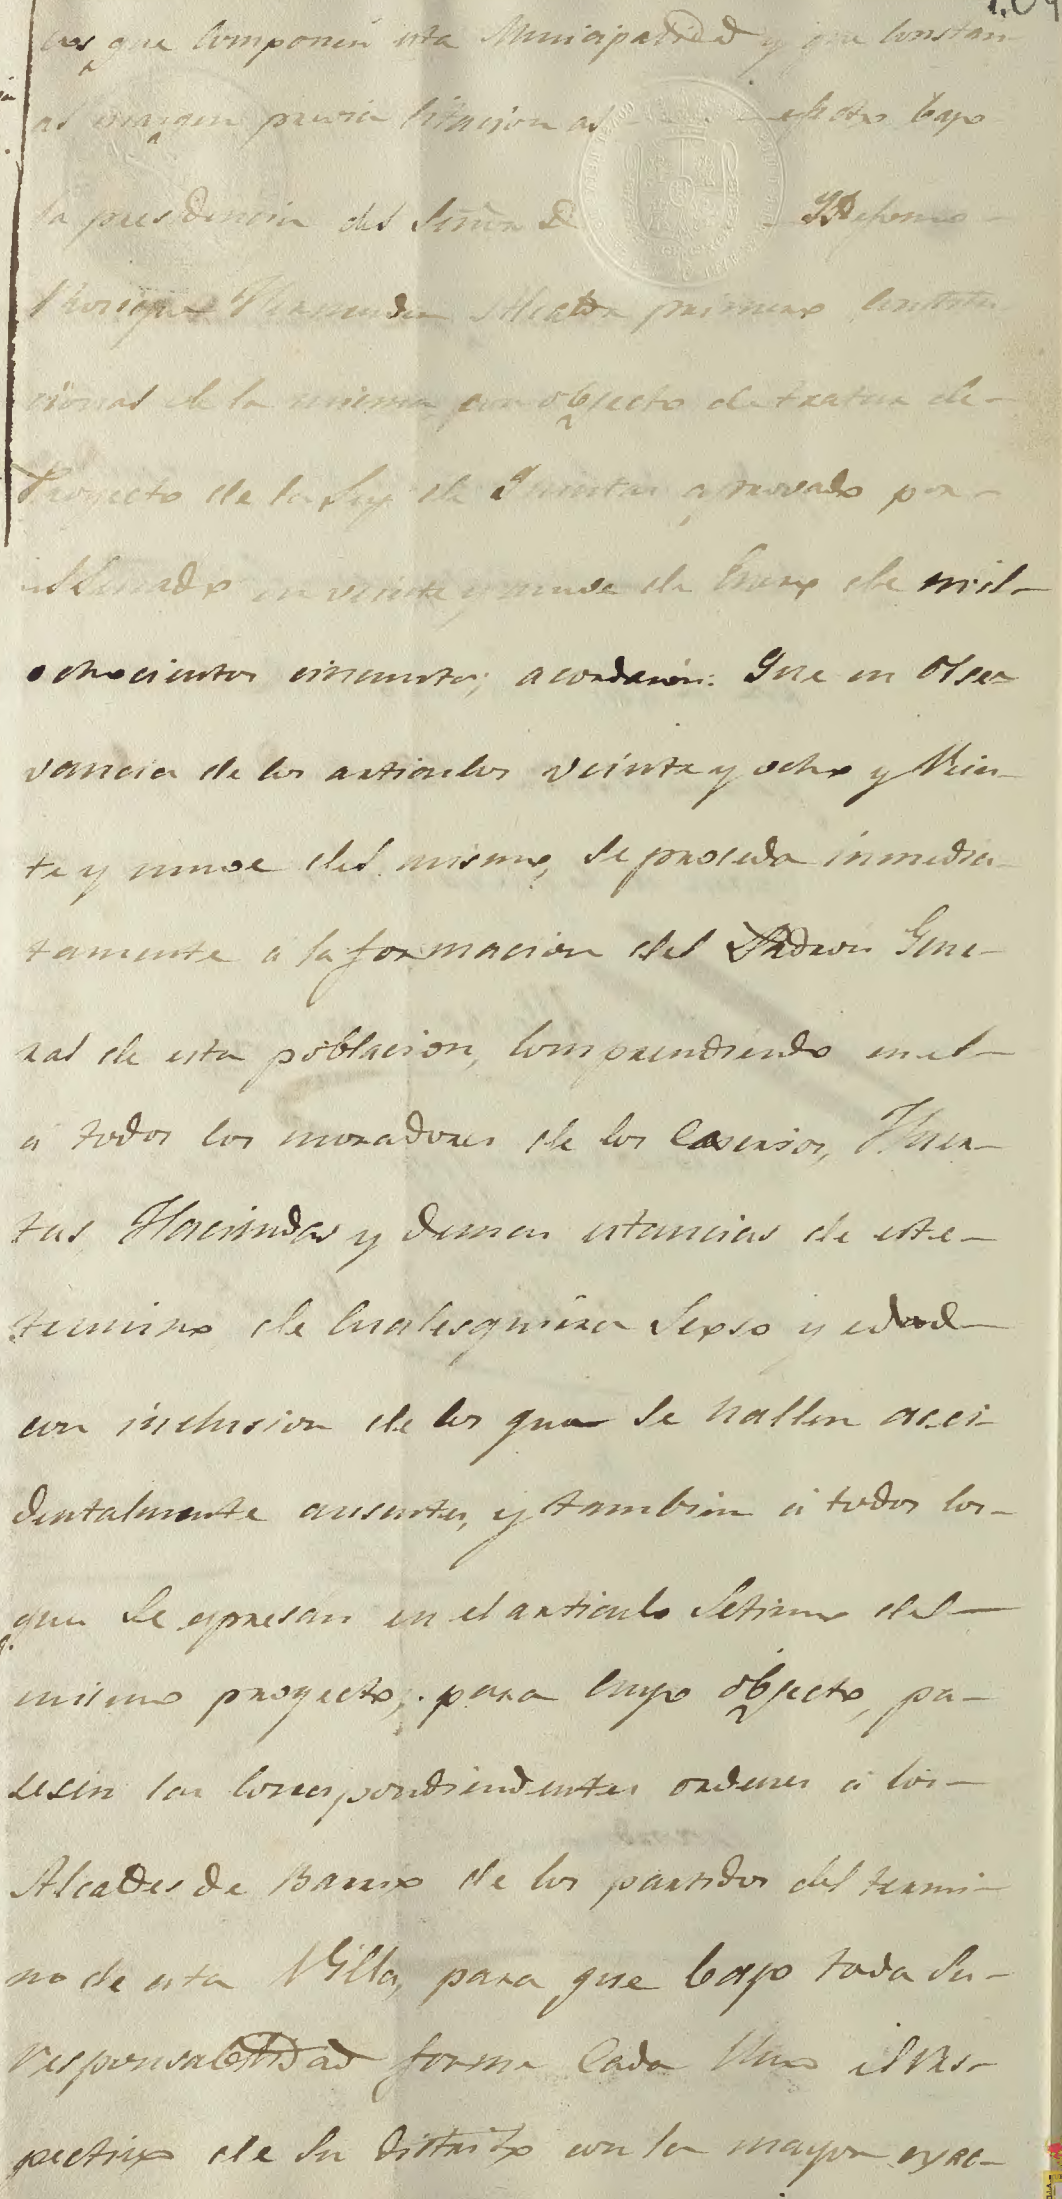 que componen esta Municipalidad y que constan
al margen previa citacion al efecto bajo
la presidencia del Señor D Ildefonso
Alcalde primero constitu
cional de la misma con objecto de tratar de
Proyecto de la Ley de Quintas aprovado por
el Senado en veinte y nueve de Enero de mil
ochocientos cincuenta; acordaron: Que en obser
vancia de los articulos veinte y ocho y Vein
te y nueve del mismo, se proceda inmedia
tamente a la formacion del Padron Gene
ral de esta poblacion, comprendiendo en el
a todos los moradores de los Caserios, Huer
tas Haciendas y demas estancias de este
termino de cualesquiera Sexso y edad
con inclusion de los que se hallen acci
dentalmente ausentes, y tambien a todos los
que se espresan en el articulo Setimo del
mismo proyecto; para cuyo objecto, pa
sesen las correspondiendentes ordenes a los
Alcaldes de Barrio de los partidos del termi
no de esta Villa, para que bajo toda su
responsabilidad forme cada Uno el res
pectivo de su distrito con la mayor expre